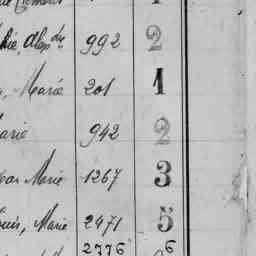 Alex dre 992 2
Marié 201 1
Marie 942 2
Marie 1267 3
Marie 2471 5
2776 6